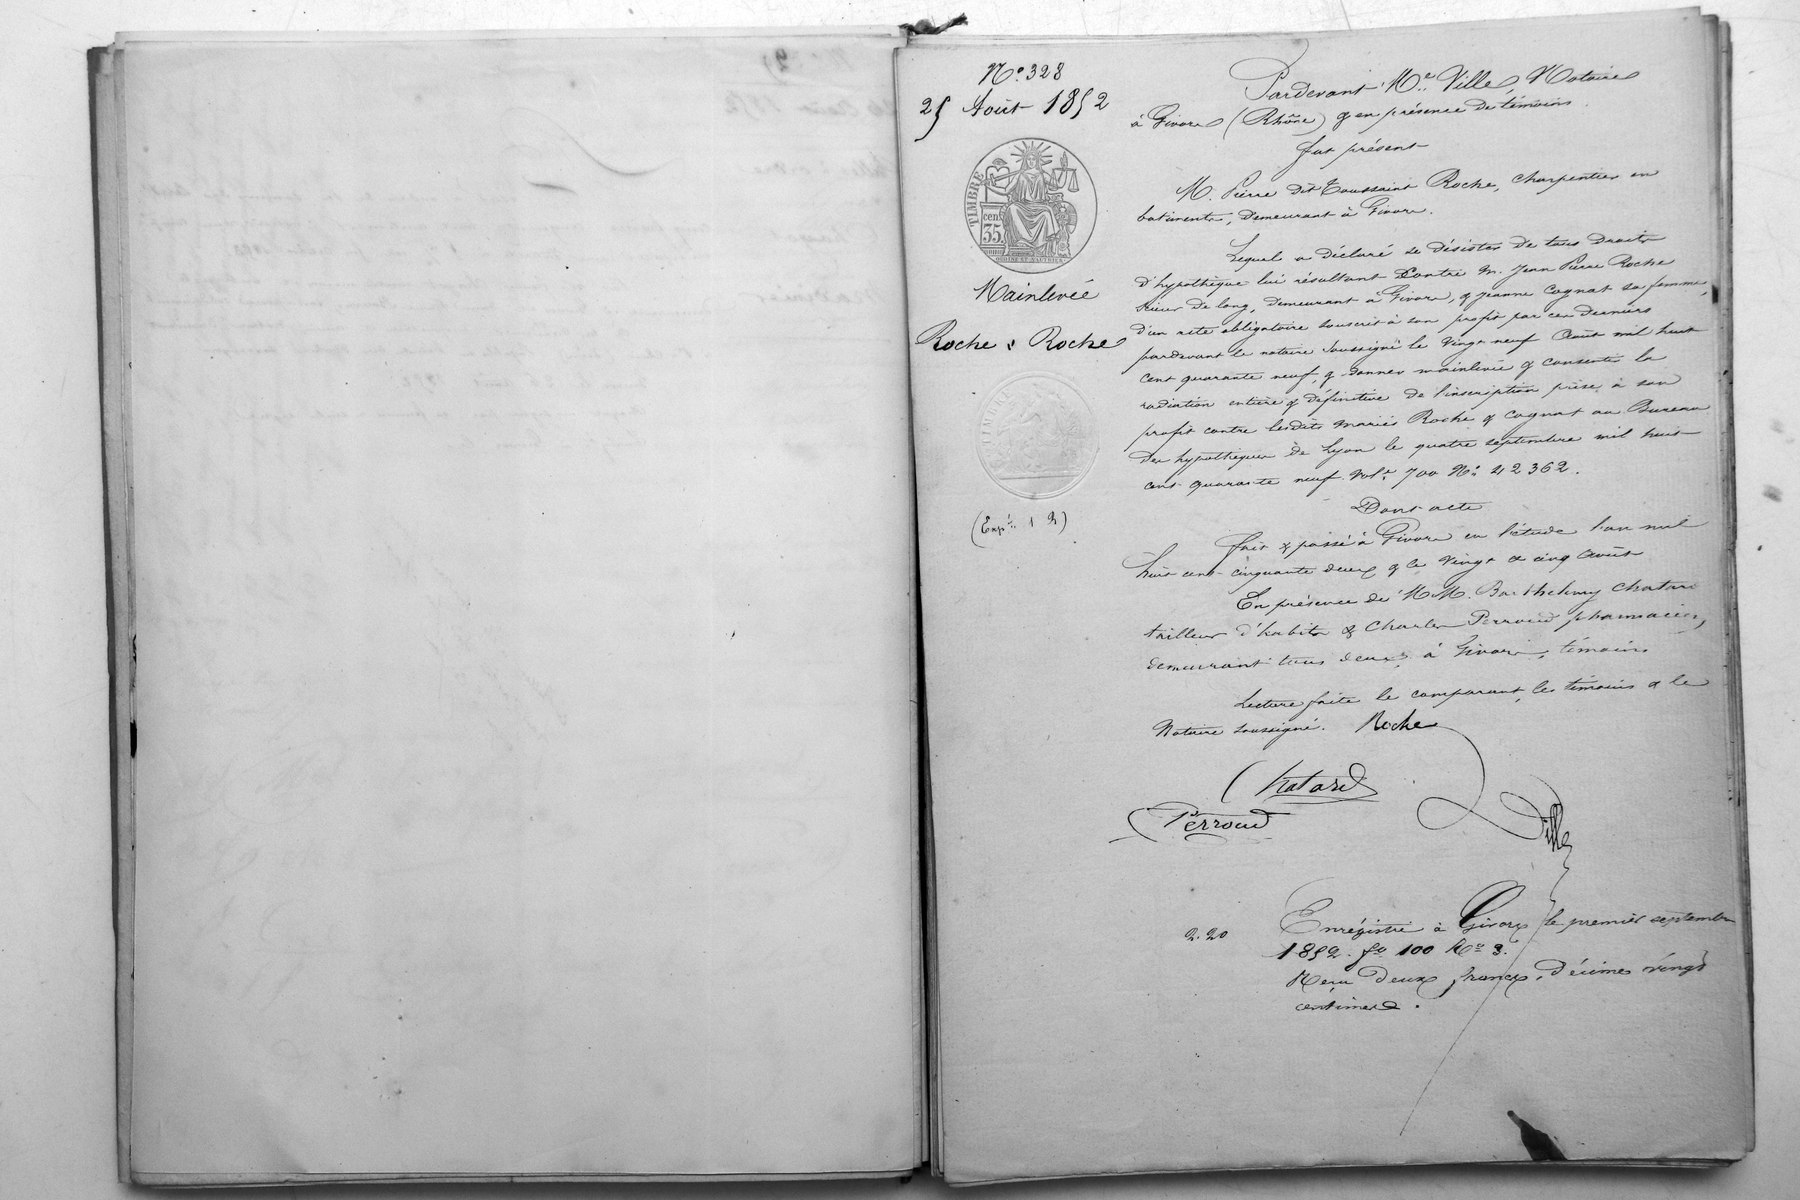 N° 328
25 Août 1852
TIMBRE
cen.
35.
Mainlevée
Roche à Roche
TIMBRE
(Exp.on 1 R)
Pardevant Me. Ville, Notaire
à Givors (Rhône) & en présence de témoins.
fut présent
M. Pierre dit Toussaint Roche, charpentier en
batiments, demeurant à Givors.
Lequel a déclaré se désister de tous droits
d'hypothèque lui résultant contre M. Jean Pierre Roche
scieur de long, demeurant à Givors, & Jeanne Cognat sa femme,
d'un acte obligatoire souscrit à son profit par ces derniers
pardevant le notaire soussigné le vingt neuf Août mil huit
cent quarante neuf, & donner mainlevée & consentir la
radiation entière & définitive de l'inscription prise à son
profit contre lesdits mariés Roche & Cognat au Bureau
des hypothèques de Lyon le quatre septembre mil huit
cent quarante neuf vol.e 700 N° 42362.
Dont acte
fait & passé à Givors en l'étude l'an mil
huit cent cinquante deux & le vingt & cinq Août
En présence de MM. Barthelemy Chatard
tailleur d'habits & Charles Perroud pharmacien,
demeurant tous deux à Givors, témoins
Lecture faite le comparant, les témoins & le
Notaire soussigné. Roche
Chatard
Perroud
Ville
2.20
Enrégistré à Givors le premier septembre
1852. fo 100 Ro 3.
Reçu deux francs, décimes vingt
centimes.